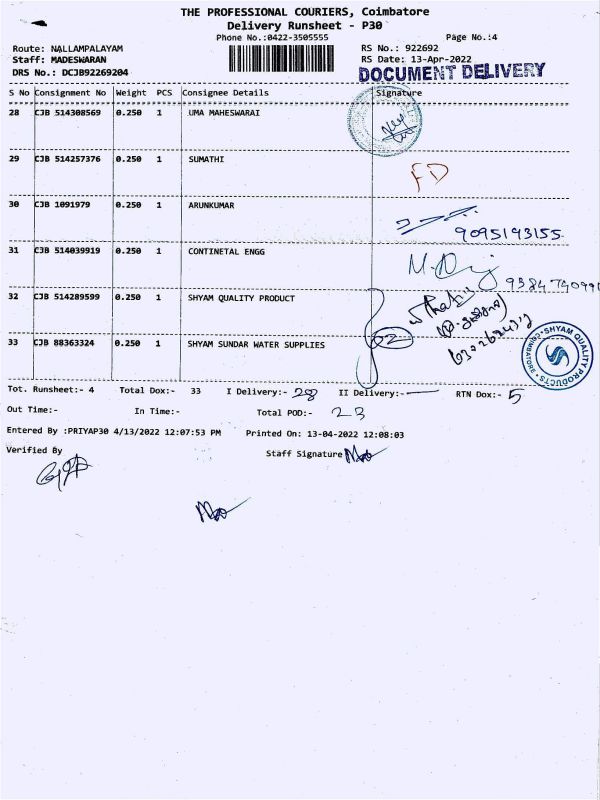 THE PROFESSIONAL COURIERS, Coimbatore
Delivery Runsheet - P30
Phone No.:0422-3505555
Page No.:4
Route: NALLAMPALAYAM
RS No.: 922692
Staff: MADESWARAN
RS Date: 13-Apr-2022
DRS No.: DCJB92269204
DOCUMENT DELIVERY
S No Consignment No Weight PCS Consignee Details Signature
28 CJB 514308569 0.250 1 UMA MAHESWARAI
29 CJB 514257376 0.250 1 SUMATHI
FD
30 CJB 1091979 0.250 1 ARUNKUMAR
9095193155
31 CJB 514039919 0.250 1 CONTINETAL ENGG
32 CJB 514289599 0.250 1 SHYAM QUALITY PRODUCT
33 CJB 88363324 0.250 1 SHYAM SUNDAR WATER SUPPLIES
02
SHYAM QUALITY PRODUCTS
COIMBATORE
Tot. Runsheet:- 4 Total Dox:- 33 I Delivery:- 28 II Delivery:- RTN Dox:- 5
Out Time:- In Time:- Total POD:- 23
Entered By :PRIYAP30 4/13/2022 12:07:53 PM Printed On: 13-04-2022 12:08:03
Verified By
Staff Signature